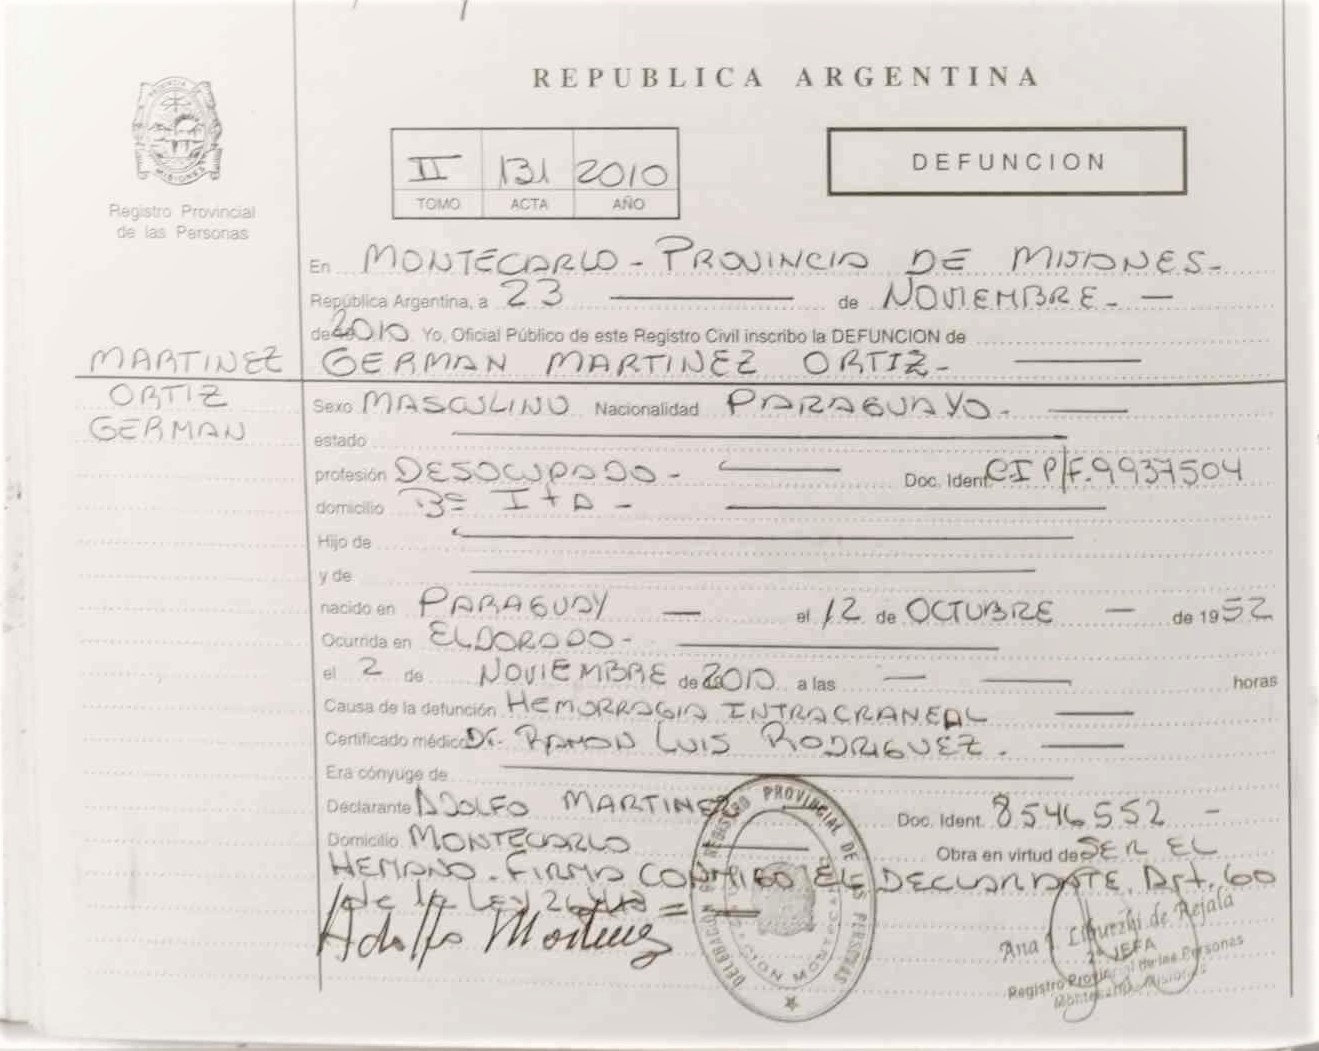 REPUBLICA ARGENTINA
MISIONES
Registro Provincial
de las Personas
II 131 2010
TOMO ACTA AÑO
DEFUNCION
En MONTECARLO - PROVINCIA DE MISIONES -
República Argentina, a 23 de NOVIEMBRE -
de 2010 Yo, Oficial Público de este Registro Civil inscribo la DEFUNCION de
MARTINEZ GERMAN MARTINEZ ORTIZ -
ORTIZ
GERMAN
Sexo MASCULINO Nacionalidad PARAGUAYO -
estado
profesión DESOCUPADO - Doc. Ident. CI P/F. 9937504
domicilio Bº ITA -
Hijo de
y de
nacido en PARAGUAY el 12 de OCTUBRE de 1952
Ocurrida en ELDORADO -
el 2 de NOVIEMBRE de 2010 a las horas
Causa de la defunción HEMORRAGIA INTRACRANEAL
Certificado médico Dr. RAMON LUIS RODRIGUEZ -
Era cónyuge de
Declarante ADOLFO MARTINEZ Doc. Ident. 8546552 -
Domicilio MONTECARLO Obra en virtud de SER EL
HEMANO - FIRMA CONMIGO EL DECLARANTE. Art. 60
de la Ley
Adolfo Martinez
DELEGACION REGISTRO PROVINCIAL DE LAS PERSONAS
Ana de Rejala
JEFA
Registro Provincial de las Personas
Montecarlo, Misiones